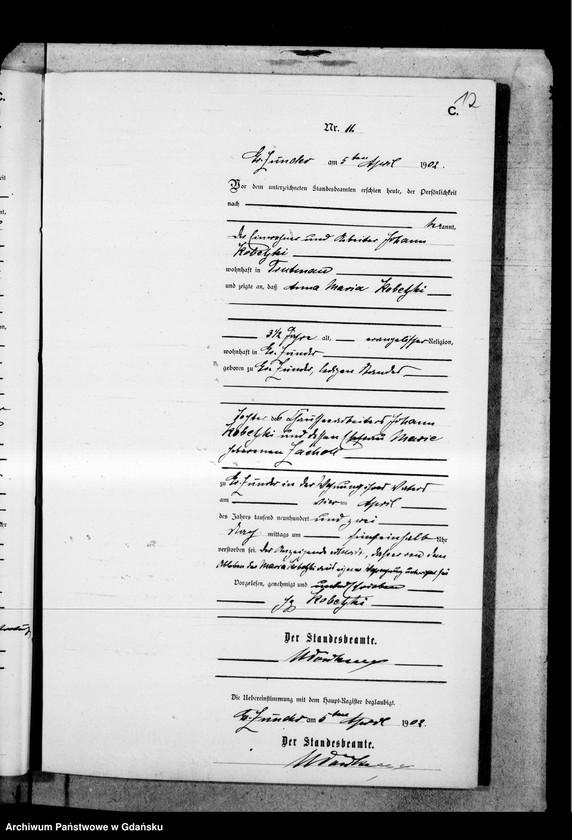 C. 12
Nr. 11.
Gr. Zünder am 5 ten April 1902.
Vor dem unterzeichneten Standesbeamten erschien heute, der Persönlichkeit
nach
be kannt,
der Einwohner und Arbeiter Johann
Kobetzki
wohnhaft in Trutenau
und zeigte an, daß Anna Maria Kobetzki
3 1/2 Jahre alt, evangelischer Religion,
wohnhaft in Gr. Zünder
geboren zu Gr. Zünder, ledigen Standes
Tochter des Johann
Kobetzki und dessen Ehefrau Marie
geborenen
zu Gr. Zünder in der Wohnung ihres Vaters
am vierten April
des Jahres tausend neunhundert und zwei
Nach mittags um fünfeinhalb Uhr
verstorben sei. Der Anzeigende erklärte, daß er von dem
Ableben der Maria Kobetzki aus eigener unterrichtet sei
Vorgelesen, genehmigt und unterschrieben
Kobetzki
Der Standesbeamte.
Die Uebereinstimmung mit dem Haupt-Register beglaubigt.
Gr. Zünder am 5 ten April 1902.
Der Standesbeamte.
Archiwum Państwowe w Gdańsku